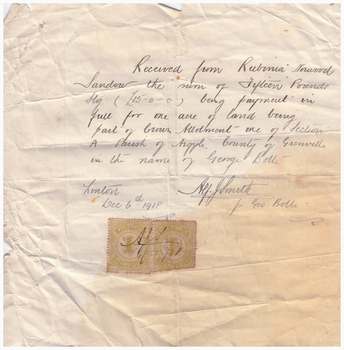 Received from Rubenia Norwood
Sandow the sum of Fifteen Pounds
Stg (£15-0-0) being payment in
full for one acre of land being
part of Crown Allotment one of Section
A Parish of Argyle, County of Grenville
in the name of George Bolte
Linton
Dec 6th 1918
Smith
p Geo. Bolte